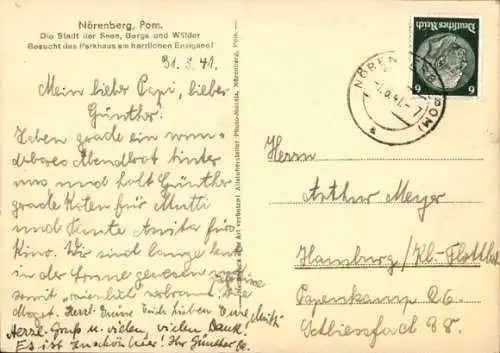 Nörenberg, Pom.
Die Stadt der Seen, Berge und Wälder
Besucht das Parkhaus am herrlichen Enzigsee!
31.5.41.
Mein lieber Papi, lieber
Günther.
Haben grade ein wun-
derbares Abendbrot hinter
uns und holt Günther
grade Karten für Mutti
und Tante Anita fürs
Kino. Wir sind lange heute
in der Sonne gewesen
somit "niedlich" verbrannt.
Herzl. Grüsse
Herzl. Gruß u. vielen, vielen Dank!
Es ist zu schön hier! Ihr Günther
Deutsches Reich
6
6
NÖRENBERG (POM)
a
Herrn
Arthur Meyer
Hamburg/Kl.-Flottbek
Papenkamp 26.
Schliessfach 38.